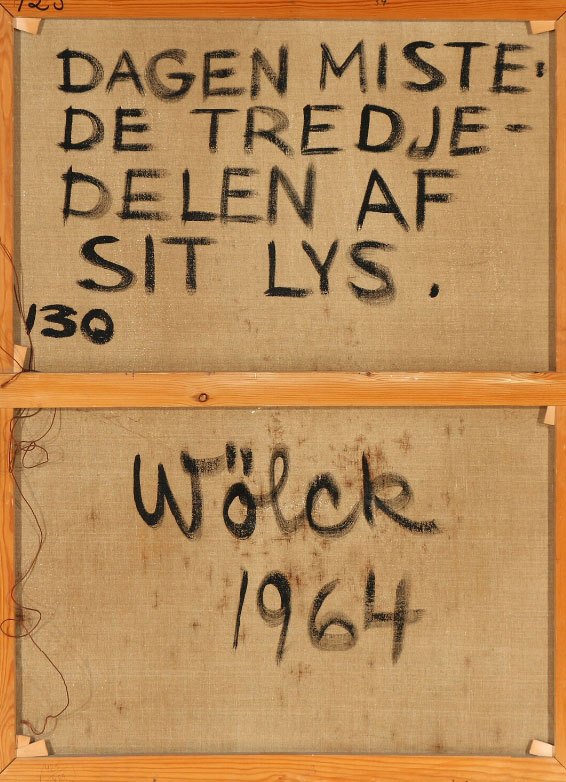 DAGEN MISTE-
DE TREDJE-
DELEN AF
SIT LYS.
130
Wölck
1964